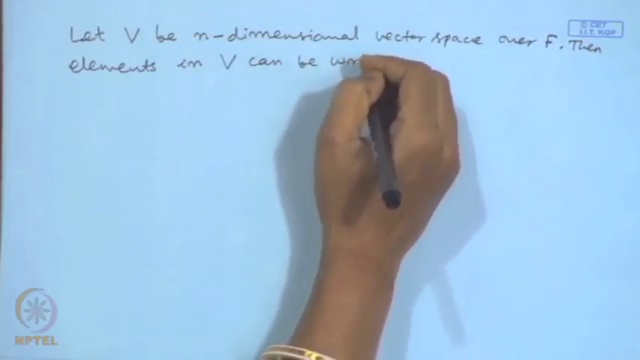 © CET
I.I.T. KGP
Let V be n-dimensional vector space over F. Then
elements in V can be
NPTEL